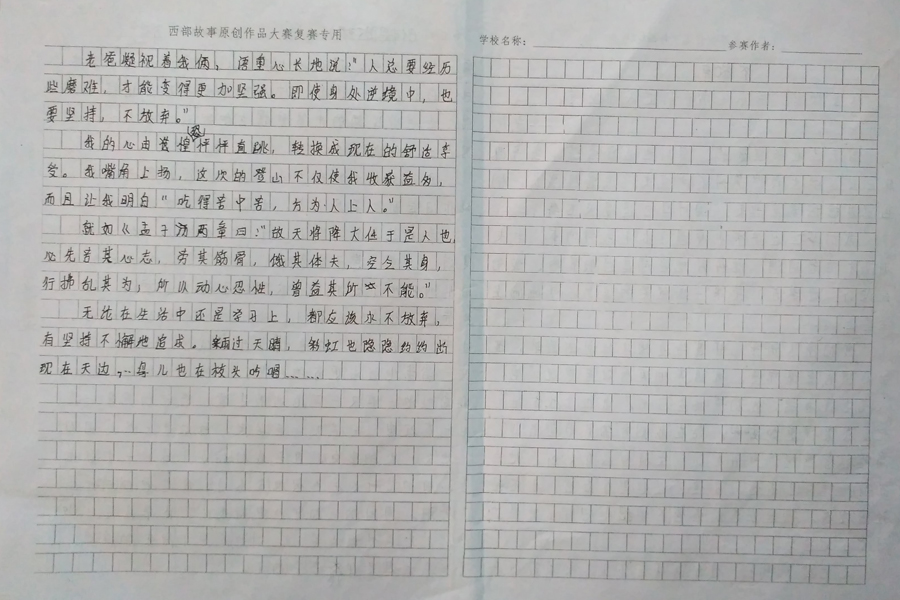 西部故事原创作品大赛复赛专用
学校名称:
参赛作者:
老爸凝视着我俩，语重心长地说："人总要经历
些磨难，才能变得更加坚强。即使身处逆境中，也
要坚持，不放弃。"
我的心由 怦怦直跳，转换成现在的舒适享
受。我嘴角上扬，这次的登山不仅使我收获益多，
而且让我明白"吃得苦中苦，方为人上人。"
就如《孟子 两章曰："故天将降大任于是人也，
必先苦其心志，劳其筋骨，饿其体夫，空乏其身，
行拂乱其为，所以动心忍性，曾益其所 不能。"
无论在生活中还是学习上，都应该永不放弃，
有坚持不懈地追求。 过天晴，彩虹也隐隐约约出
现在天边，…鸟儿也在枝头吟唱……